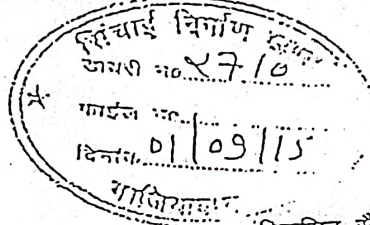 सिंचाई निर्माण खण्ड
डायरी न०.२710
फाईल न०
दिनांक 01/09/15
गाजियाबाद